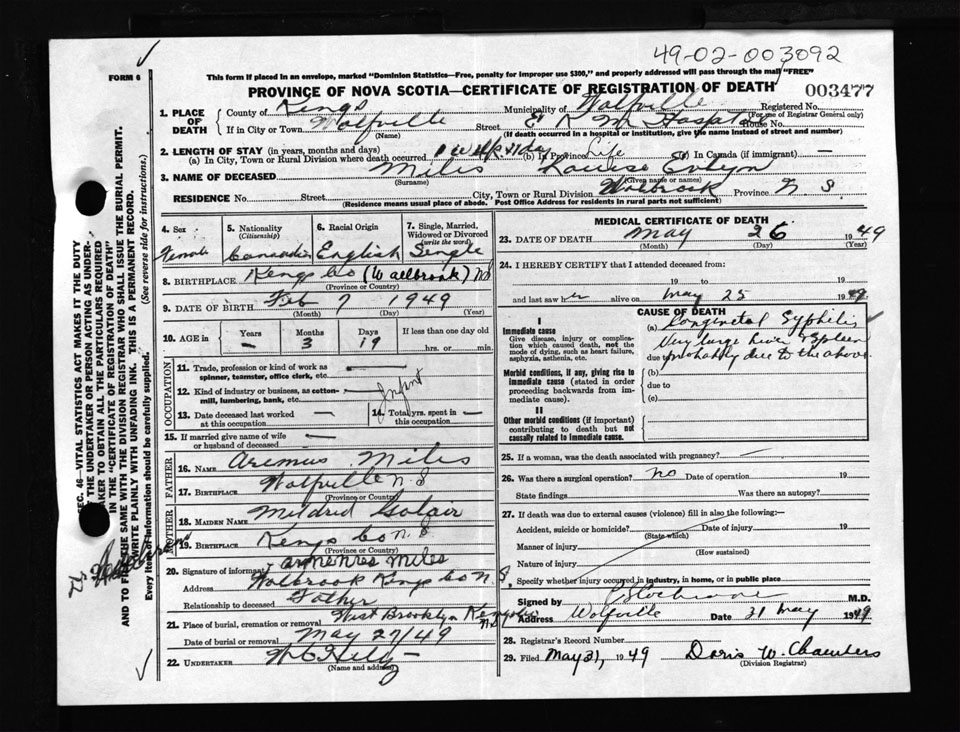 49-02-003092
FORM 6
This form if placed in an envelope, marked "Dominion Statistics—Free, penalty for improper use $300," and properly addressed will pass through the mail "FREE"
PROVINCE OF NOVA SCOTIA—CERTIFICATE OF REGISTRATION OF DEATH
003477
1. PLACE OF DEATH
County of Kings
Municipality of Wolfville
Registered No.
(For use of Registrar General only)
If in City or Town Wolfville Street E K M Hospital House No.
(Name) (If death occurred in a hospital or institution, give the name instead of street and number)
2. LENGTH OF STAY (in years, months and days)
(a) In City, Town or Rural Division where death occurred 1 day (b) In Province Life (c) In Canada (if immigrant) —
3. NAME OF DECEASED Miles Evelyn
(Surname) (Given name or names)
RESIDENCE No. Street City, Town or Rural Division Wolbrook Province N. S
(Residence means usual place of abode. Post Office Address for residents in rural parts not sufficient)
4. Sex
Female
5. Nationality
(Citizenship)
Canadian
6. Racial Origin
English
7. Single, Married, Widowed or Divorced
(write the word)
Single
8. BIRTHPLACE Kings Co (Wallbrook) NS
(Province or Country)
9. DATE OF BIRTH Feb 7 1949
(Month) (Day) (Year)
10. AGE in
Years
—
Months
3
Days
19
If less than one day
hrs. or min.
OCCUPATION
11. Trade, profession or kind of work as spinner, teamster, office clerk, etc. —
12. Kind of industry or business, as cotton-mill, lumbering, bank, etc. Infant
13. Date deceased last worked at this occupation —
14. Total yrs. spent in this occupation —
15. If married give name of wife or husband of deceased —
FATHER
16. NAME Miles
17. BIRTHPLACE Wolfville N. S
(Province or Country)
MOTHER
18. MAIDEN NAME Mildred
19. BIRTHPLACE Kings Co N. S
(Province or Country)
20. Signature of informant Miles
Address Wolbrook Kings Co N. S
Relationship to deceased Father
21. Place of burial, cremation or removal West Brooklyn Kings Co NS
Date of burial or removal May 27/49
22. UNDERTAKER
(Name and address)
MEDICAL CERTIFICATE OF DEATH
23. DATE OF DEATH May 26 1949
(Month) (Day) (Year)
24. I HEREBY CERTIFY that I attended deceased from:
19 to 19
and last saw her alive on May 25 1949
CAUSE OF DEATH
I
Immediate cause
Give disease, injury or complication which caused death, not the mode of dying, such as heart failure, asphyxia, asthenia, etc.
(a) Congenital Syphilis
Very large liver & spleen
due to probably due to the above.
Morbid conditions, if any, giving rise to immediate cause (stated in order proceeding backwards from immediate cause).
(b)
due to
(c)
II
Other morbid conditions (if important) contributing to death but not causally related to immediate cause.
25. If a woman, was the death associated with pregnancy? —
26. Was there a surgical operation? no Date of operation 19
State findings Was there an autopsy?
27. If death was due to external causes (violence) fill in also the following:—
Accident, suicide or homicide? Date of injury 19
(State which)
Manner of injury
(How sustained)
Nature of injury
Specify whether injury occurred in industry, in home, or in public place
Signed by Cochrane M.D.
Address Wolfville Date 31 May 1949
28. Registrar's Record Number
29. Filed May 31, 1949 Doris W. Chambers
(Division Registrar)
SEC. 46—VITAL STATISTICS ACT MAKES IT THE DUTY
OF THE UNDERTAKER OR PERSON ACTING AS UNDER-
TAKER TO OBTAIN ALL THE PARTICULARS REQUIRED
IN THE "CERTIFICATE OF REGISTRATION OF DEATH"
AND TO FILE THE SAME WITH THE DIVISION REGISTRAR WHO SHALL ISSUE THE BURIAL PERMIT.
WRITE PLAINLY WITH UNFADING INK. THIS IS A PERMANENT RECORD.
Every item of information should be carefully supplied. (See reverse side for instructions.)